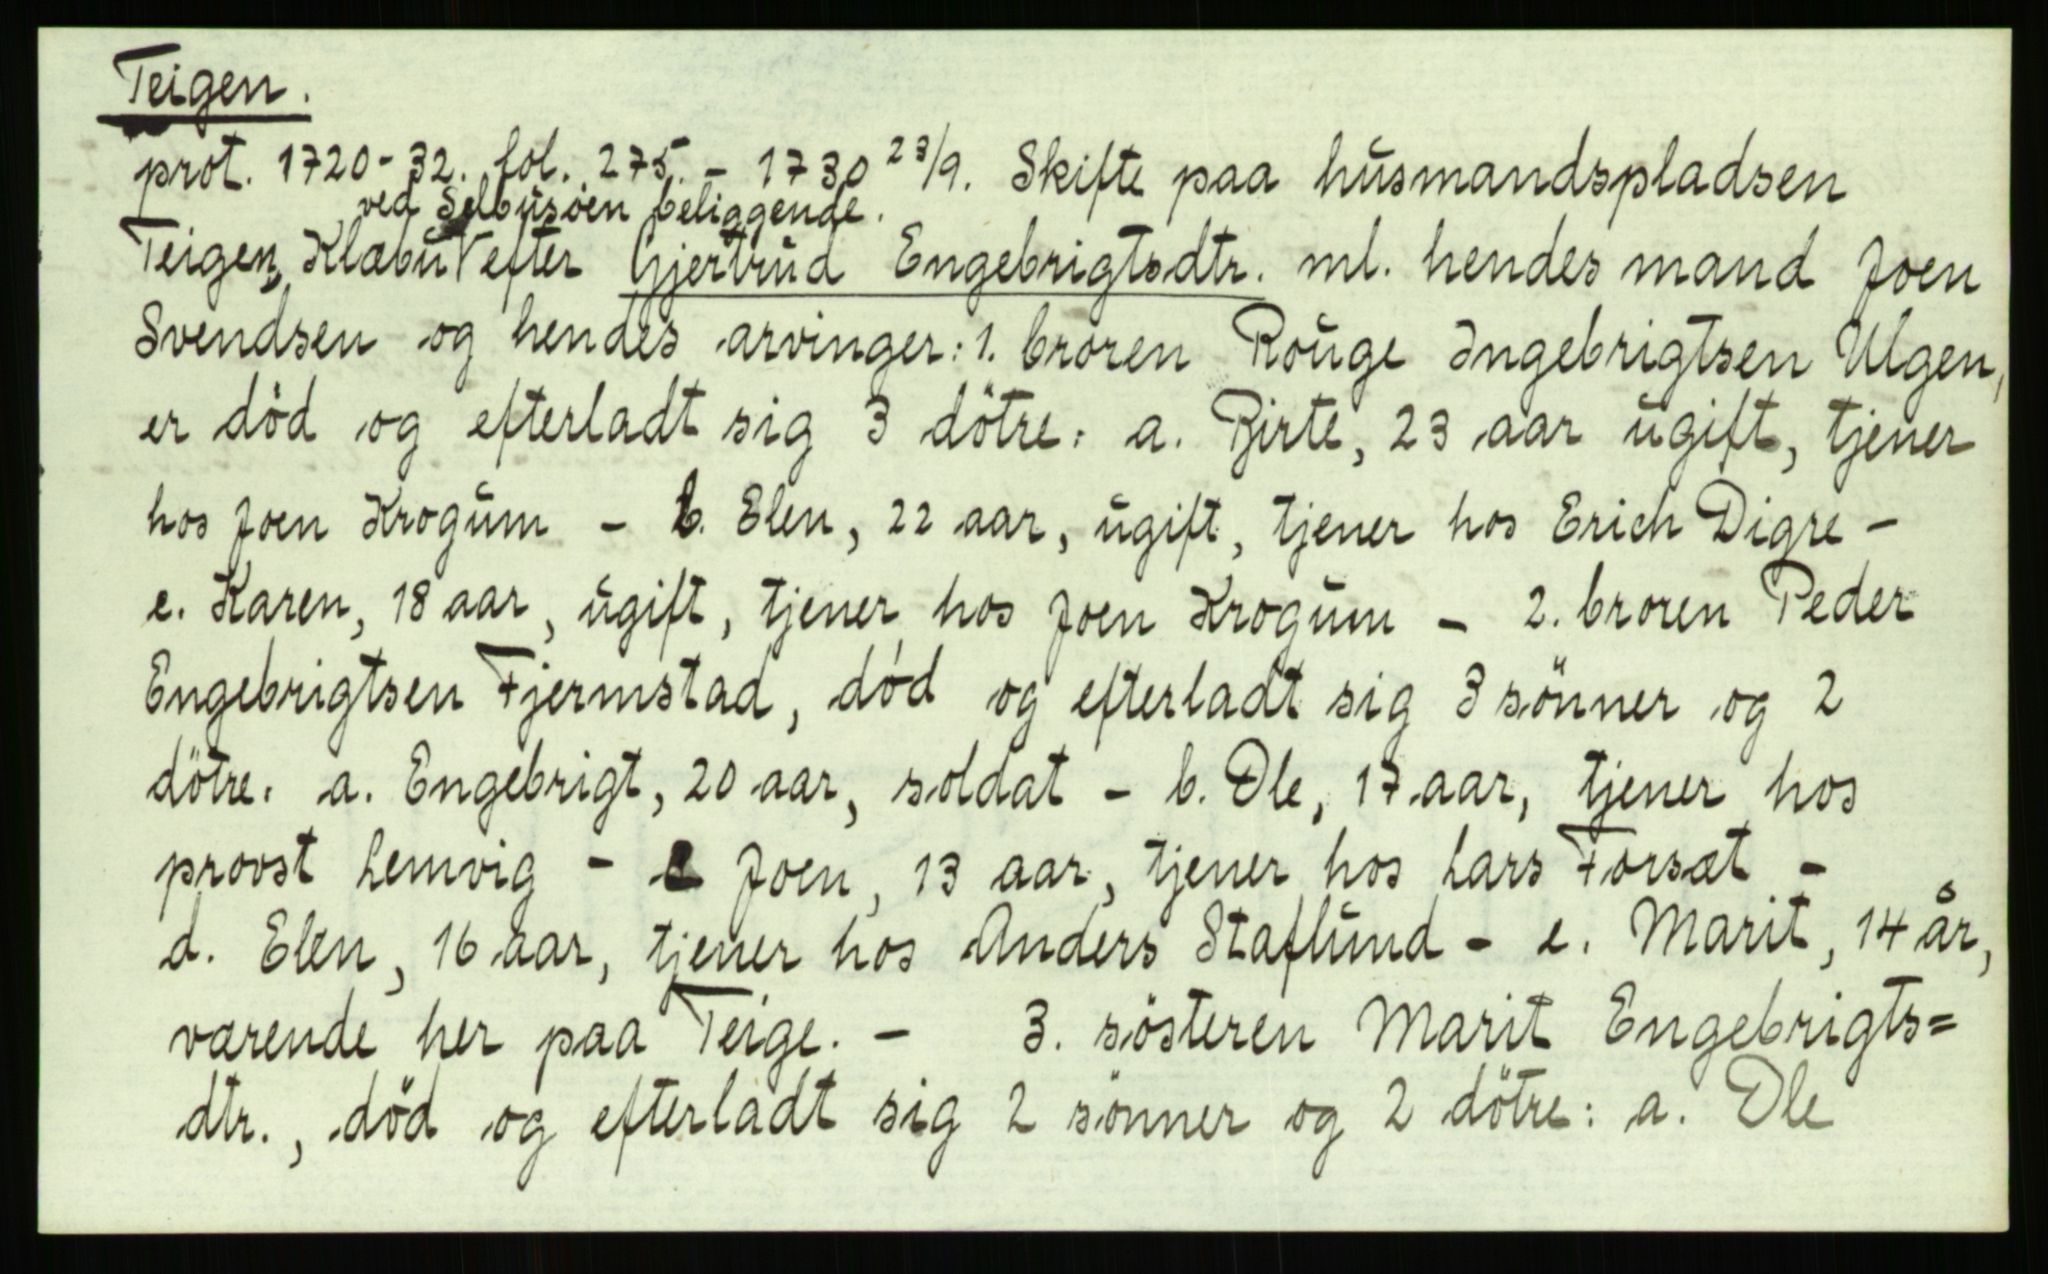 Teigen.
prot. 1720-32. fol. 275. - 1730 23/9. Skifte paa husmandspladsen
ved Selbusöen beliggende.
Teigen, Klæbu V efter Gjertrud Engebrigtsdtr. ml. hendes mand Joen
Svendsen og hendes arvinger: 1. broren Rouge Ingebrigtsen Ulgen,
er död og efterladt sig 3 dötre: a. Birte, 23 aar ugift, tjener
hos Joen Krogum - b. Elen, 22 aar, ugift, tjener hos Erich Digre -
c. Karen, 18 aar, ugift, tjener hos Joen Krogum - 2. broren Peder
Engebrigtsen Fjermstad, död og efterladt sig 3 sönner og 2
dötre: a. Engebrigt, 20 aar, soldat - b. Ole, 17 aar, tjener hos
provst Lemvig - c Joen, 13 aar, tjener hos Lars Forsæt -
d. Elen, 16 aar, tjener hos Anders Staflund - e. Marit, 14 år,
værende her paa Teige. - 3. sösteren Marit Engebrigts=
dtr., död og efterladt sig 2 sönner og 2 dötre: a. Ole